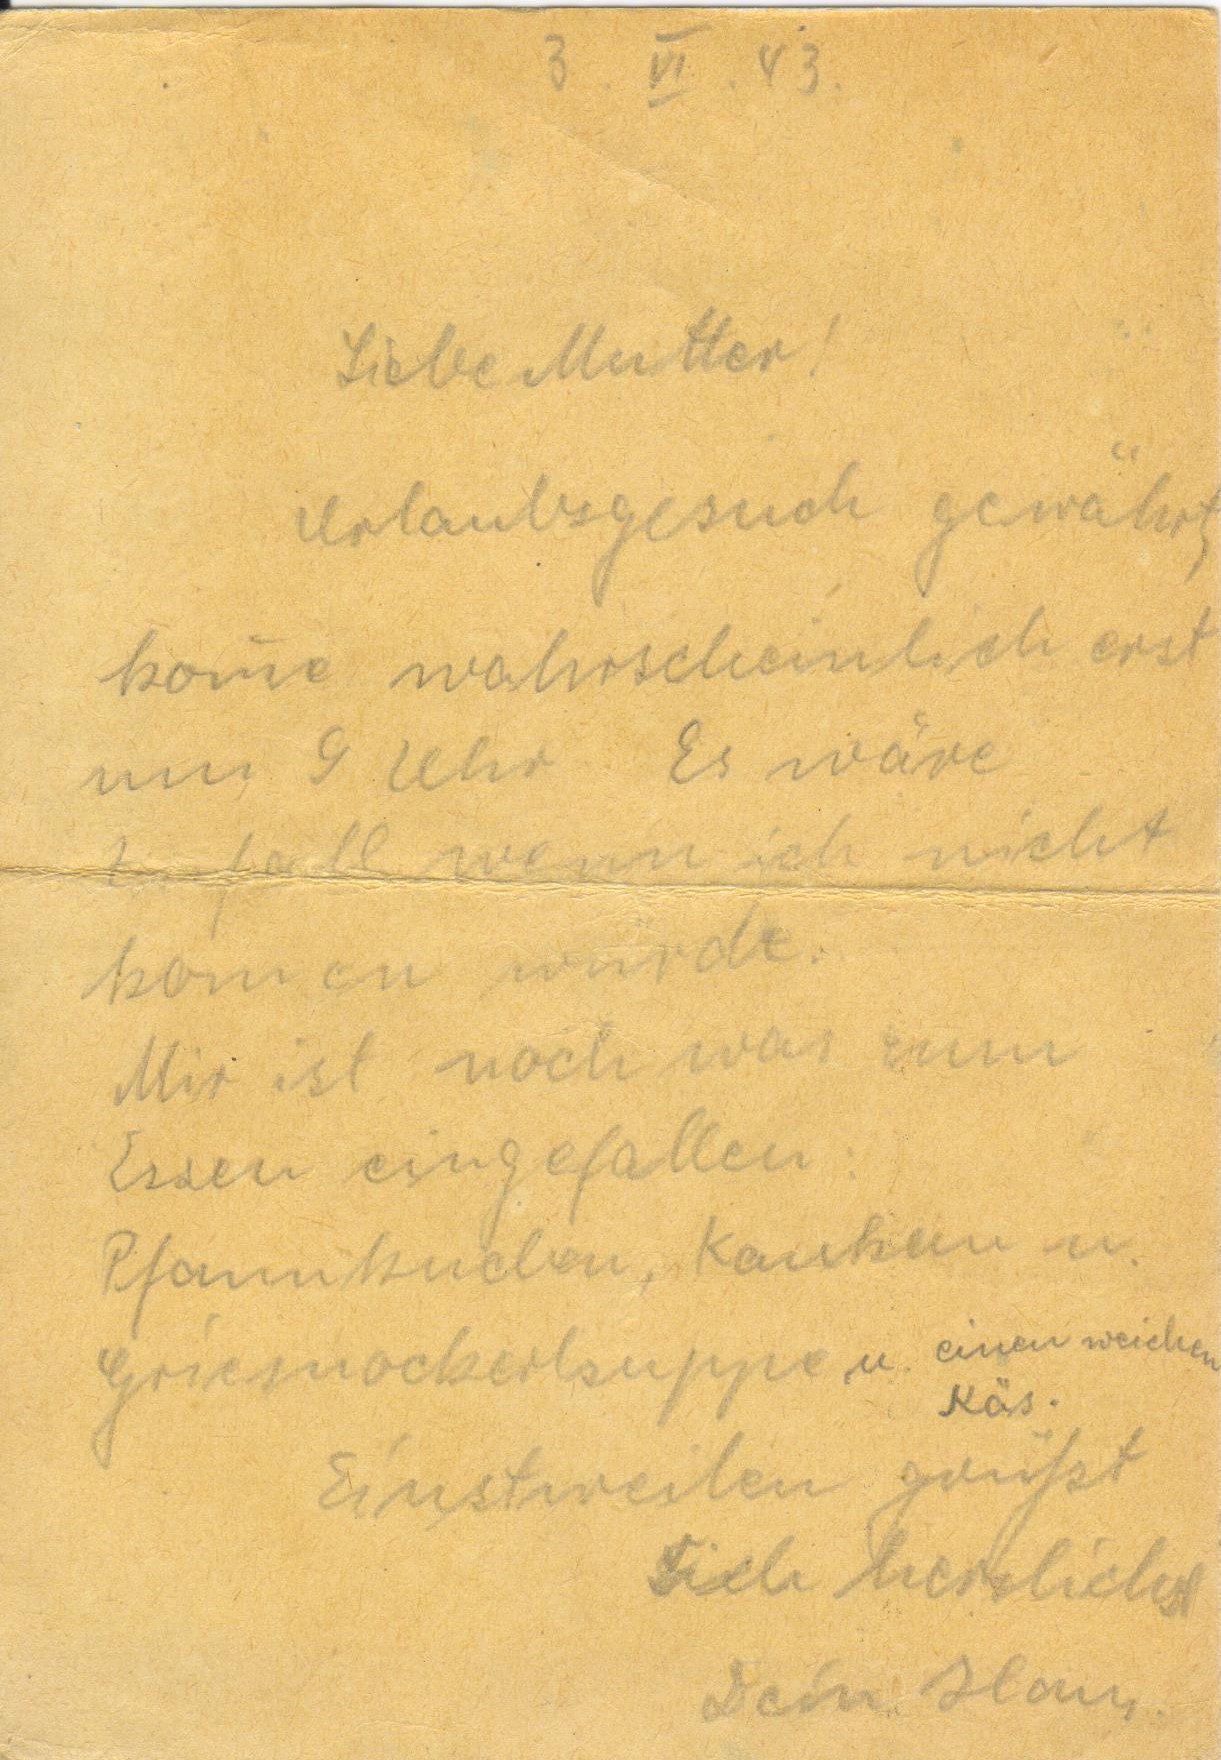 3. VI. 43.
Liebe Mutter!
Urlaubsgesuch gewährt,
kom̅e wahrscheinlich erst
um 9 Uhr Es wäre
Zufall wenn ich nicht
komen würde.
Mir ist noch was zum
Essen eingefallen:
Pfannkuchen, u.
Griesnockerlsuppe u. einen weichen
Käs.
Einstweilen grüßt
Dich herzlichst
Dein Hans.